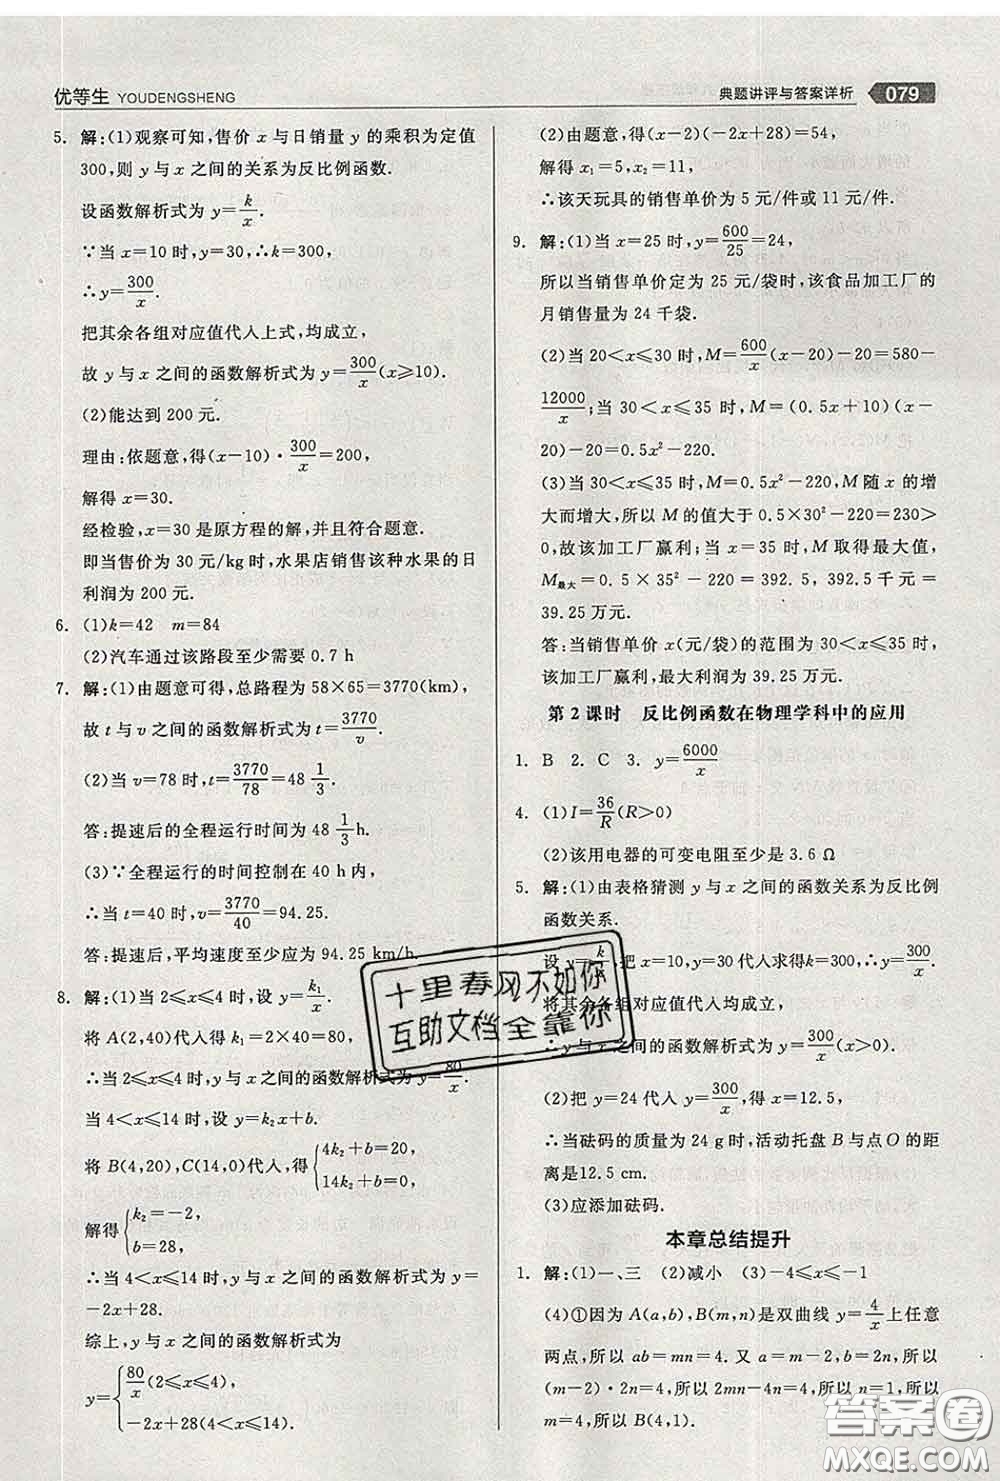 优等生 YOUDENGSHENG
典题讲评与答案详析 079
5. 解:(1)观察可知,售价 x 与日销量 y 的乘积为定值
300,则 y 与 x 之间的关系为反比例函数.
设函数解析式为 y=k/x.
∵当 x=10 时,y=30,∴k=300,
∴y=300/x.
把其余各组对应值代入上式,均成立,
故 y 与 x 之间的函数解析式为 y=300/x(x≥10).
(2)能达到 200 元.
理由:依题意,得(x-10)·300/x=200,
解得 x=30.
经检验,x=30 是原方程的解,并且符合题意.
即当售价为 30 元/kg 时,水果店销售该种水果的日
利润为 200 元.
6. (1)k=42 m=84
(2)汽车通过该路段至少需要 0.7 h
7. 解:(1)由题意可得,总路程为 58×65=3770(km),
故 t 与 v 之间的函数解析式为 t=3770/v.
(2)当 v=78 时,t=3770/78=48 1/3.
答:提速后的全程运行时间为 48 1/3 h.
(3)∵全程运行的时间控制在 40 h 内,
∴当 t=40 时,v=3770/40=94.25.
答:提速后,平均速度至少应为 94.25 km/h.
8. 解:(1)当 2≤x≤4 时,设 y=k₁/x.
将 A(2,40)代入得 k₁=2×40=80,
∴当 2≤x≤4 时,y 与 x 之间的函数解析式为 y=80/x.
当 4<x≤14 时,设 y=k₂x+b.
将 B(4,20),C(14,0)代入,得{4k₂+b=20,
14k₂+b=0,
解得{k₂=-2,
b=28,
∴当 4<x≤14 时,y 与 x 之间的函数解析式为 y=
-2x+28.
综上,y 与 x 之间的函数解析式为
y={80/x(2≤x≤4),
-2x+28(4<x≤14).
(2)由题意,得(x-2)(-2x+28)=54,
解得 x₁=5,x₂=11,
∴该天玩具的销售单价为 5 元/件或 11 元/件.
9. 解:(1)当 x=25 时,y=600/25=24,
所以当销售单价定为 25 元/袋时,该食品加工厂的
月销售量为 24 千袋.
(2)当 20<x≤30 时,M=600/x(x-20)-20=580-
12000/x;当 30<x≤35 时,M=(0.5x+10)(x-
20)-20=0.5x²-220.
(3)当 30<x≤35 时,M=0.5x²-220,M 随 x 的增
大而增大,所以 M 的值大于 0.5×30²-220=230>
0,故该加工厂赢利;当 x=35 时,M 取得最大值,
M最大=0.5×35²-220=392.5,392.5 千元=
39.25 万元.
答:当销售单价 x(元/袋)的范围为 30<x≤35 时,
该加工厂赢利,最大利润为 39.25 万元.
第 2 课时 反比例函数在物理学科中的应用
1. B 2. C 3. y=6000/x
4. (1)I=36/R(R>0)
(2)该用电器的可变电阻至少是 3.6 Ω
5. 解:(1)由表格猜测 y 与 x 之间的函数关系为反比例
函数关系.
设 y=k/x,把 x=10,y=30 代入求得k=300,∴y=300/x.
将其余各组对应值代入均成立,
∴y 与 x 之间的函数解析式为 y=300/x(x>0).
(2)把 y=24 代入 y=300/x,得 x=12.5,
∴当砝码的质量为 24 g 时,活动托盘 B 与点 O 的距
离是12.5 cm.
(3)应添加砝码.
本章总结提升
1. 解:(1)一、三 (2)减小 (3)-4≤x≤-1
(4)①因为 A(a,b),B(m,n)是双曲线 y=4/x上任意
两点,所以 ab=mn=4. 又 a=m-2,b=2n,所以
(m-2)·2n=4,所以 2mn-4n=4,所以 n=1,所以
m=4,所以 B(4,1).
十里春风不如你
互助文档全靠你
答案圈
MXQE.COM